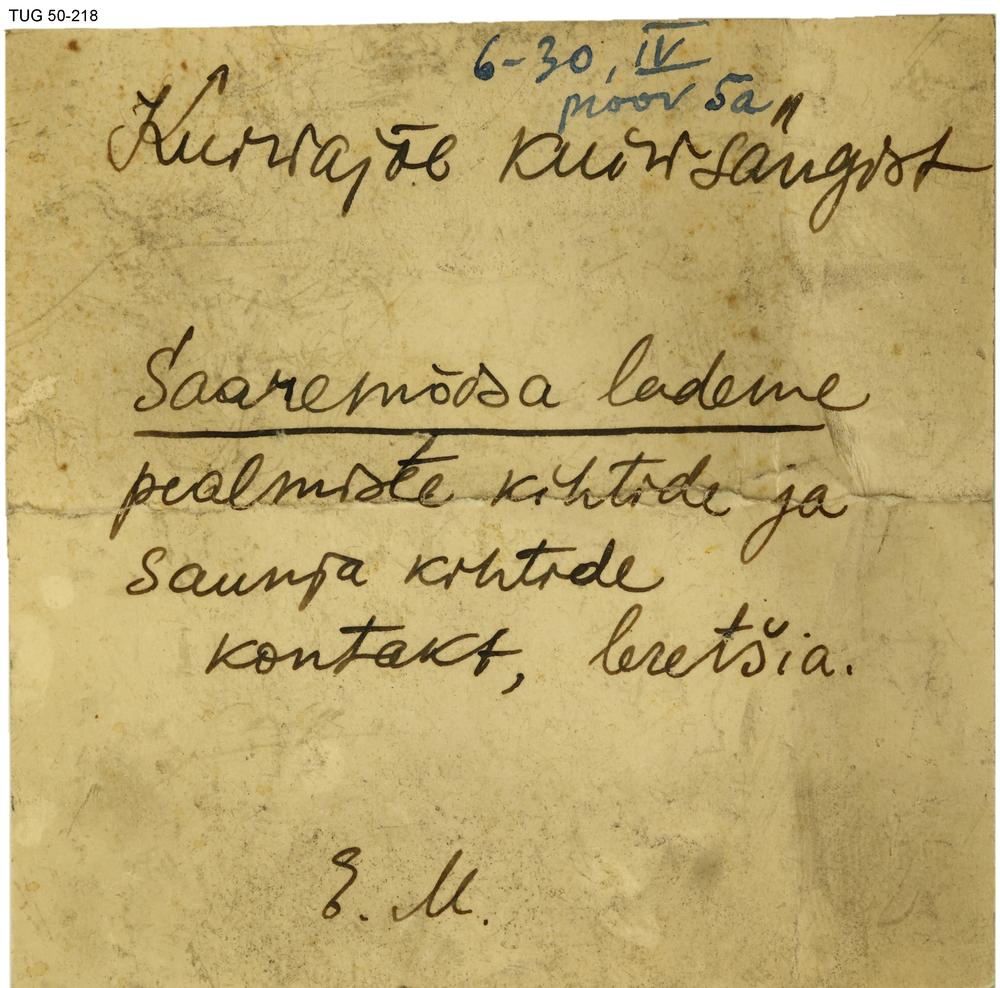 TUG 50-218
6-30, IV
proov 5a
Kuivajõe kuivsängist
Saaremõisa lademe
pealmiste kihtide ja
Saunja kihtide
kontakt, bretšia.
E. M.